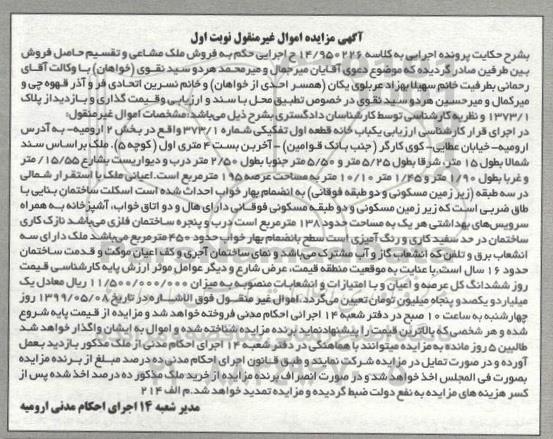 آگهی مزایده اموال غیرمنقول نوبت اول
بشرح حکایت پرونده اجرایی به کلاسه ۱۴/۹۵۰۲۲۶ ج اجرایی حکم به فروش ملک مشاعی و تقسیم حاصل فروش
بین طرفین صادر گردیده که موضوع دعوی آقایان میرجمال و میرمحمد هر دو سید نقوی (خواهان) با وکالت آقای
رحمانی بطرفیت خانم سهیلا بهزاد عربلوی یکان (همسر احدی از خواهان) و خانم نسرین اتحادی فر و آذر قهوه چی و
میرکمال و میرحسین هر دو سید نقوی در خصوص تطبیق محل با سند و ارزیابی وقیمت گذاری و بازدید از پلاک
۱۳۷۳/۱ و نظریه کارشناسی توسط کارشناسان دادگستری بشرح ذیل می‌باشد: مشخصات اموال غیرمنقول:
در اجرای قرار کارشناسی ارزیابی یکباب خانه قطعه اول تفکیکی شماره ۳۷۳/۱ واقع در بخش ۲ ارومیه- به آدرس
ارومیه- خیابان عطایی- کوی کارگر (جنب بانک قوامین) - آخرین بست ۴ متری اول (کوچه ۵). ملک بر اساس سند
شمالا بطول ۱۵ متر، شرقا بطول ۵/۲۵ متر و ۵/۵۰ متر جنوبا بطول ۲/۵۰ متر درب و دیواریست بشارع ۱۵/۵۵ متر
و غربا بطول ۱/۹۰ متر و ۱/۴۵ متر ۱۰/۱۰ متر به مساحت عرصه ۱۹۵ مترمربع است. اعیانی ملک با استقرار شمالی
در سه طبقه (زیر زمین مسکونی و دو طبقه فوقانی) به انضمام بهار خواب احداث شده است اسکلت ساختمان بنایی با
طاق ضربی است که زیر زمین مسکونی و دو طبقه مسکونی فوقانی دارای هال و دو اتاق خواب، آشپزخانه به همراه
سرویس‌های بهداشتی هر یک به مساحت حدود ۱۳۸ مترمربع است درب و پنجره ساختمان فلزی می‌باشد نازک کاری
ساختمان در حد سفید کاری و رنگ آمیزی است سطح بانضمام بهار خواب حدود ۴۵۰ مترمربع می‌باشد ملک دارای سه
انشعاب برق و تلفن که انشعاب گاز و آب مشترک می‌باشد و نمای ساختمان آجری و کف اعیان موکت و قدمت ساختمان
حدود ۱۶ سال است. با عنایت به موقعیت منطقه قیمت، عرض شارع و دیگر عوامل موثر ارزش پایه کارشناسی قیمت
روز ششدانگ کل عرصه و اعیان و با امتیازات و انشعابات منصوبه به میزان ۱۱/۵۰۰/۰۰۰/۰۰۰ ریال معادل یک
میلیارد و یکصدو پنجاه میلیون تومان تعیین می‌گردد. اموال غیر منقول فوق الاشاره در تاریخ ۱۳۹۹/۰۵/۰۸ روز
چهارشنبه به ساعت ۱۰ صبح در دفتر شعبه ۱۴ اجرائی احکام مدنی فروخته خواهد شد و مزایده از قیمت پایه شروع
شده و هر شخصی که بالاترین قیمت را پیشنهاد نماید برنده مزایده شناخته شده و اموال به ایشان واگذار خواهد شد
طالبین ۵ روز مانده به مزایده میتوانند با هماهنگی در دفتر شعبه ۱۴ اجرای احکام مدنی از ملک مذکور بازدید بعمل
آورده و در صورت تمایل در مزایده شرکت نمایند و طبق قانون اجرای احکام مدنی ده درصد مبلغ از برنده مزایده
بصورت فی المجلس اخذ خواهد شد و در صورت انصراف برنده مزایده از خرید ملک مذکور ده درصد اخذ شده پس از
کسر هزینه های مزایده به نفع دولت ضبط گردیده و مزایده تمدید خواهد شد. م الف ۲۱۴
مدیر شعبه ۱۴ اجرای احکام مدنی ارومیه